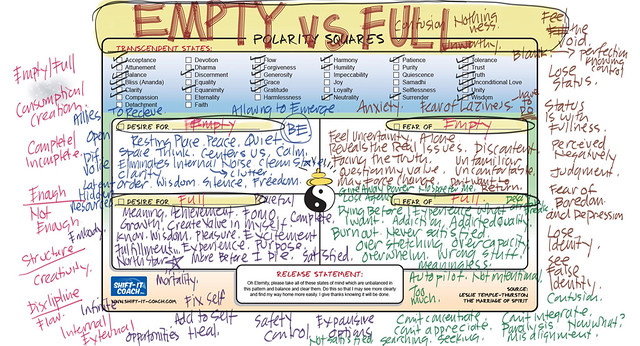 EMPTY vs FULL
POLARITY SQUARES
TRANSCENDENT STATES:
Acceptance
Attunement
Balance
Bliss (Ananda)
Clarity
Compassion
Detachment
Devotion
Dharma
Discernment
Equality
Equanimity
Eternality
Faith
Flow
Forgiveness
Generosity
Grace
Gratitude
Harmlessness
Harmony
Humility
Impeccability
Joy
Loyalty
Neutrality
Patience
Purity
Quiescence
Samadhi
Selflessness
Surrender
Tolerance
Trust
Truth
Unconditional Love
Unity
Wisdom
Confusion Nothing
ness.
Unworthy.
Feel
the
Void.
Blank. → perfection
knowing
control
Lose
Status.
Status
is with
Fullness.
Perceived
Negatively
Judgment.
Fear of
Boredom
and Depression
Lose
Identity.
see
False
Identity.
Confusion.
Empty/Full
Consumption
Creation.
Complete/
Incomplete.
Enough
Not
Enough
Structure
Creativity.
Discipline
Flow.
Internal
External
Allies
Open
Pit
Void
Latent
Hidden
Resources
Embody.
Infinite
To Recieve.
Allowing to Emerge
Anxiety.
Fear of Laziness
have
to
DO
DESIRE FOR Empty
BE
Resting Place. Peace. Quiet
Space Think. Centers us. Calm.
Eliminates Internal Noise Clean slate
Clarity
→ clutter
order. Wisdom. Silence, Freedom.
FEAR OF Empty
Feel Uncertain. Alone
Reveals the Real Issues. Discontent.
Facing the Truth. Unfamiliar
uncertainty. Value. Uncomfortable.
may force Change. Painful to
Return.
DESIRE FOR Full
Meaning. Achievement. FOMO
Complete.
Growth. Create Value in myself.
Knowledge. Pleasure. Excitement
Fulfillment. Experience. Purpose.
North Star
More Before I Die. Satisfied.
Mortality.
FEAR OF Full
Give Away Power. No space for Me.
Lose Agency
Bring Before I Experience what
I want. Addiction. Addicted quality.
Burnout. Never satisfied.
over stretching. overcapacity
overwhelm. Wrong stuff.
meaningless.
Auto pilot. Not intentional.
Too
Much.
RELEASE STATEMENT:
Oh Eternity, please take all of these states of mind which are unbalanced in
this pattern and balance and clear them. Do this so that I may see more clearly
and find my way home more easily. I give thanks knowing it will be done.
SHIFT-IT
COACH
WWW.SHIFT-IT-COACH.COM
SOURCE:
LESLIE TEMPLE-THURSTON
THE MARRIAGE OF SPIRIT
Fix Self
Add to Self
Opportunities Heal.
Safety
Control
Expansive
Options
Not satisfied searching. Seeking.
Can't concentrate
Can't appreciate.
Can't integrate.
Paralysis Now what?
misalignment.